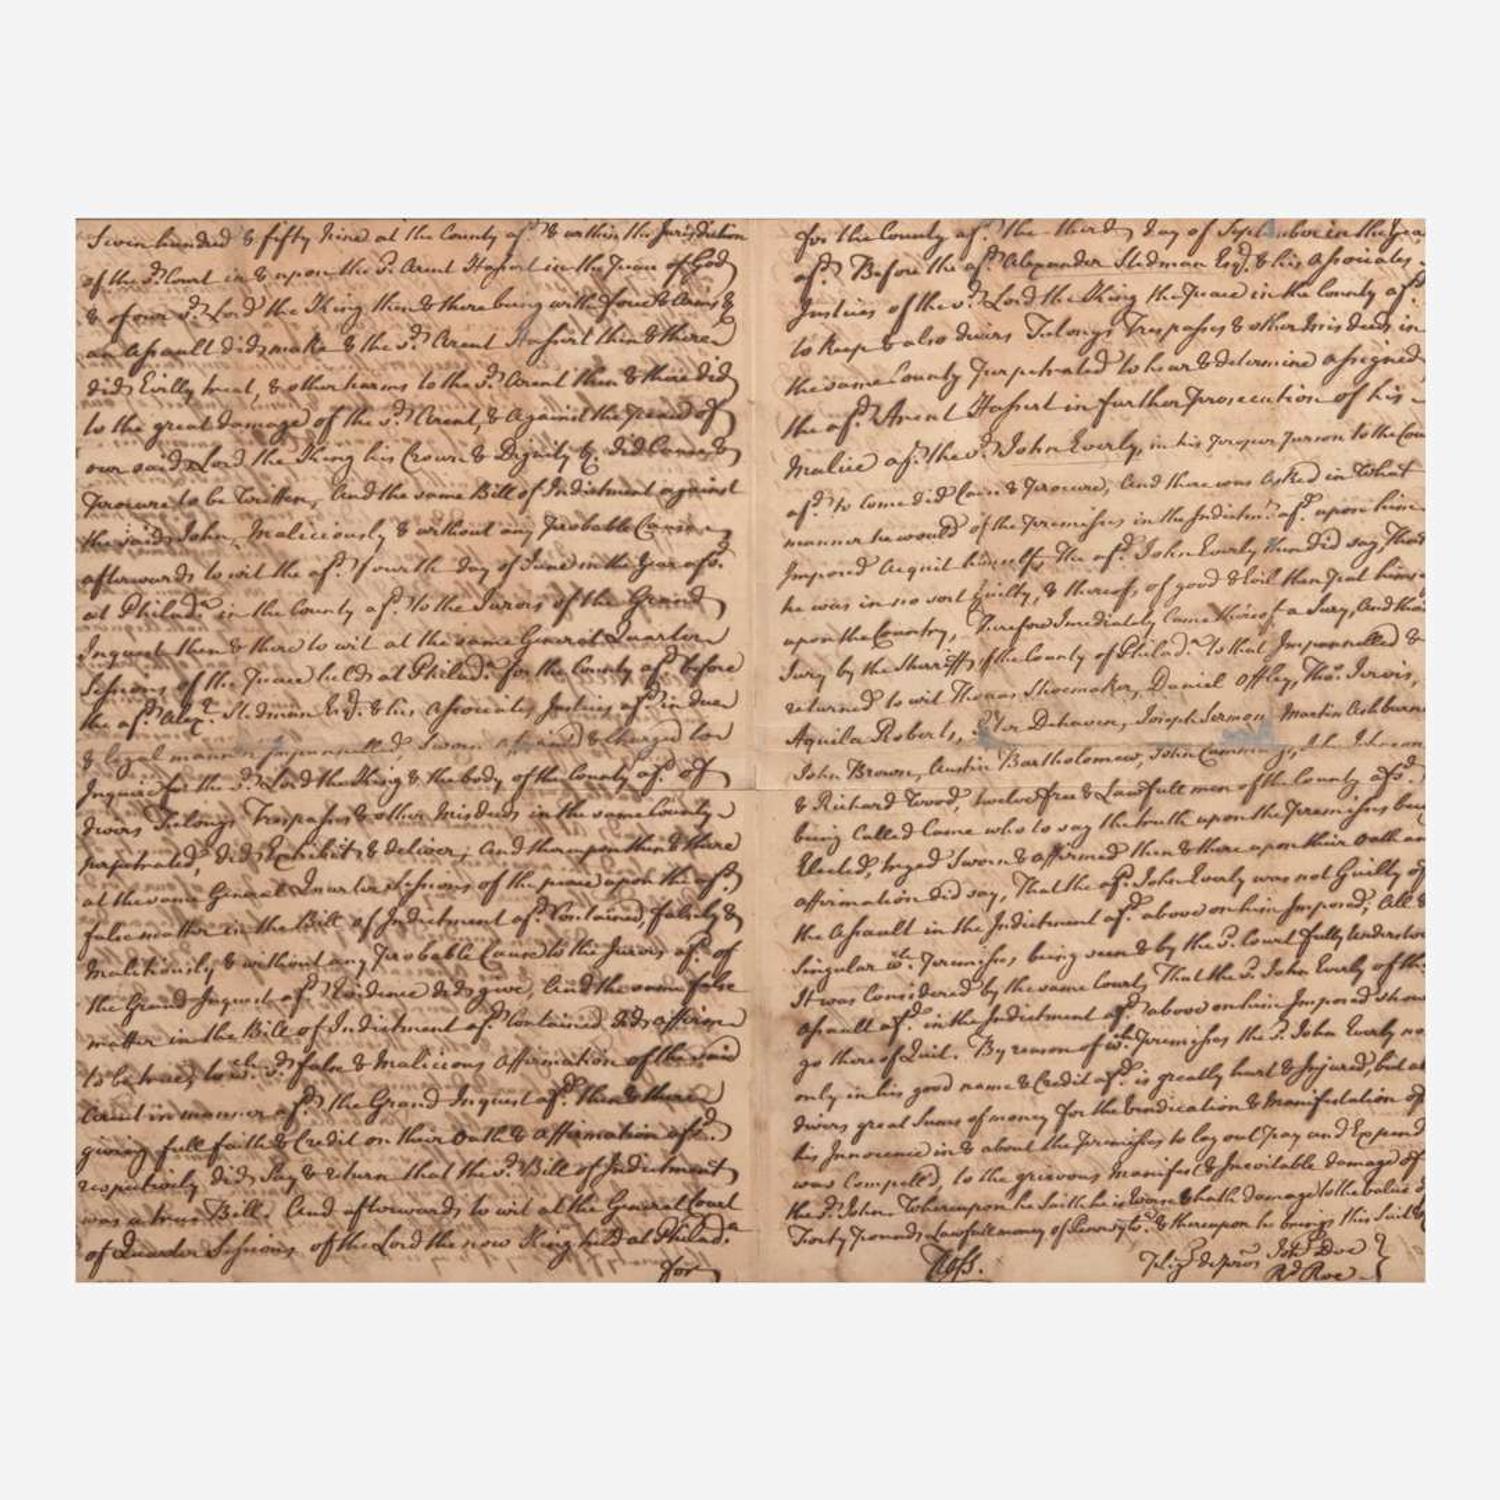 Seven hundred & fifty Nine at the County afd. & within the Jurisdiction
of the sd. Court in & upon the sd. Arent Hassert in the Peace of God
& of our sd. Lord the King then & there being with force & Arms &
an Assault did make & the sd. Arent Hassert then & there
did Evilly treat, & other harms to the sd. Arent then & there did
to the great damage of the sd. Arent, & Against the peace of
our said Lord the King his Crown & Dignity &c. did Cause, &
procure to be Written, And the same Bill of Indictment against
the said John, Maliciously & without any probable Cause
afterwards to wit the afd. fourth day of June in the Year afsd.
at Philada. in the County afd. to the Jurors of the Grand
Inquest then & there to wit at the same General Quarter
Sessions of the Peace held at Philada. for the County afd. before
the afd. Alexr. Stedman Esqr. & his Associates Justices afd. in due
& legal manner Impannelled Sworn & Charged to
Inquire for the sd. Lord the King & the body of the County afd. of
divers Felonys Trespasses & other Misdeeds in the same County
perpetrated, did Exhibit & deliver, And thereupon then & there
at the same General Quarter Sessions of the peace upon the afd.
false matter in the Bill of Indictment afd. Contained, falsely &
Malitiously & without any Probable Cause to the Jurors afd. of
the Grand Inquest afd. Evidence did give, And the same false
matter in the Bill of Indictment afd. Contained did affirm
to be true, to wch. sd. false & Malicious Affirmation of the said
Arent in manner afd. the Grand Inquest afd. then & there
giving full faith & Credit on their Oath & Affirmation afsd.
respectively did Say & return that the sd. Bill of Indictment
was a true Bill. And afterwards to wit at the General Court
of Quarter Sessions of the Lord the now King held at Philada.
for
for the County afd. the third day of September in the Year
afd. Before the afd. Alexander Stedman Esqr. & his Associates
Justices of the sd. Lord the King the Peace in the County afd.
to keep & also divers Felonys Trespasses & other Misdeeds in
the same County Perpetrated to hear & determine assigned
the afd. Arent Hassert in further Prosecution of his
Malice afd. the sd. John Everly, in his proper person to the Cou
afd. to come did Cause & Procure, And there was Asked in what
manner he would of the Premisses in the Indictmt. afd. upon him
Imposed Acquit himself, The afd. John Everly then did say, That
he was in no sort Guilty, & thereof, of good & Evil then put himse
upon the Country, Therefore Imediately Came thereof a Jury, And tha
Jury by the Sherriff of the County of Philada. to that Impannelled &
returned to wit Thomas Shoemaker, Daniel Offley, Thos. Jervis,
Aquila Roberts, Peter Dehaven, Joseph Jermon Martin Ashburn
John Brown, Austin Bartholomew, John Cummings, Johnson
& Richard Wood, twelve free & Lawfull men of the County afsd.
being Called Came who to say the truth upon the Premisses bei
Elected, tryed Sworn & affirmed then & there upon their Oath an
affirmation did say, That the afd. John Everly was not Guilty of
the Assault in the Indictment afd. above on him Imposed, All &
Singular wch. Premisses, being seen & by the sd. Court fully Understo
It was Considered by the same Court, That the sd. John Everly of the
Assault afd. in the Indictment afd. above on him Imposed shou
go thereof Quit. By reason of wch. Premisses the sd. John Everly no
only in his good name & Credit afd. is greatly hurt & Injured, but al
divers great Sums of money for the Vindication & Manifestation of
his Innocence in & about the Premisses to lay out Pay and Expend
was Compelled, to the grievous Manifest & Inevitable damage of
the sd. John. Whereupon he Saith he is Worse & hath damage to the value of
Forty Pounds Lawfull money of Pennsyla. & thereupon he brings this Suit &
Ross. Pledg's de pros Jno. Doe }
Rd. Roe }